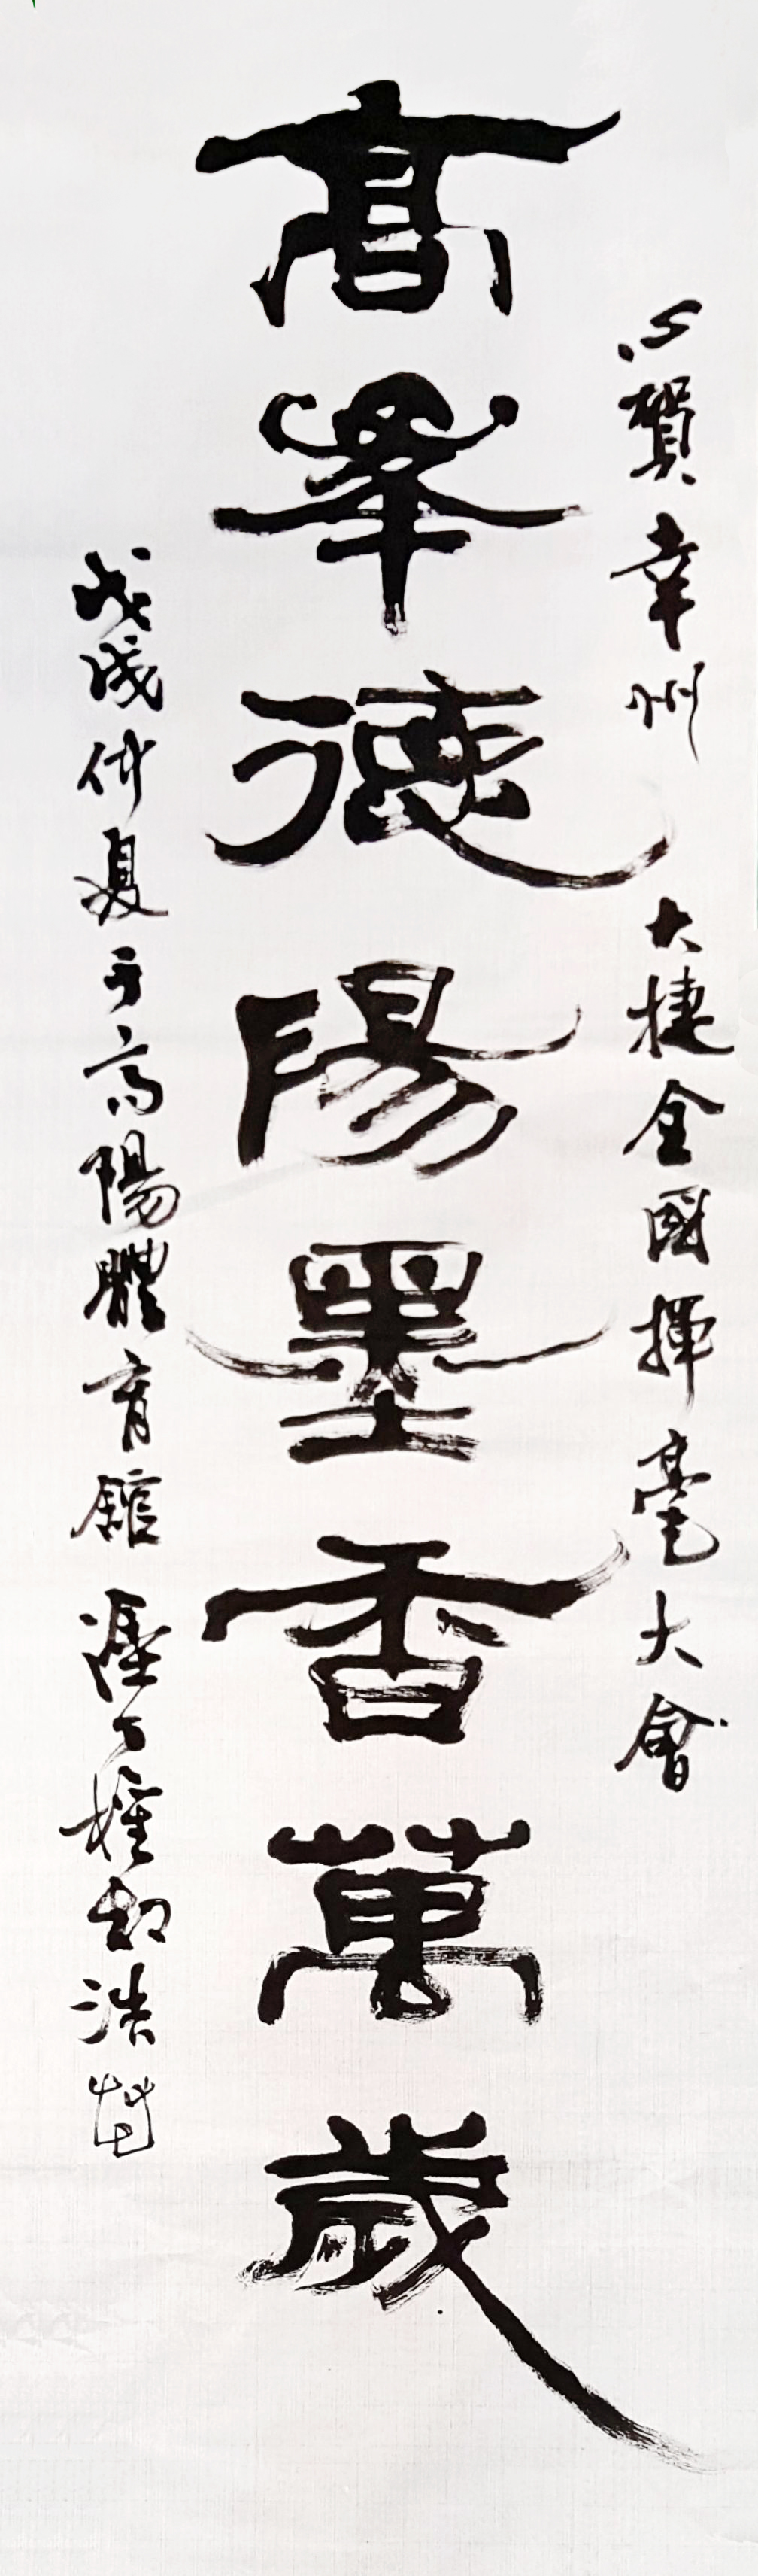 賀幸州 大捷全國揮毫大會
高峯德陽墨香萬歲
戊戌仲夏于高陽體育館 權 浩